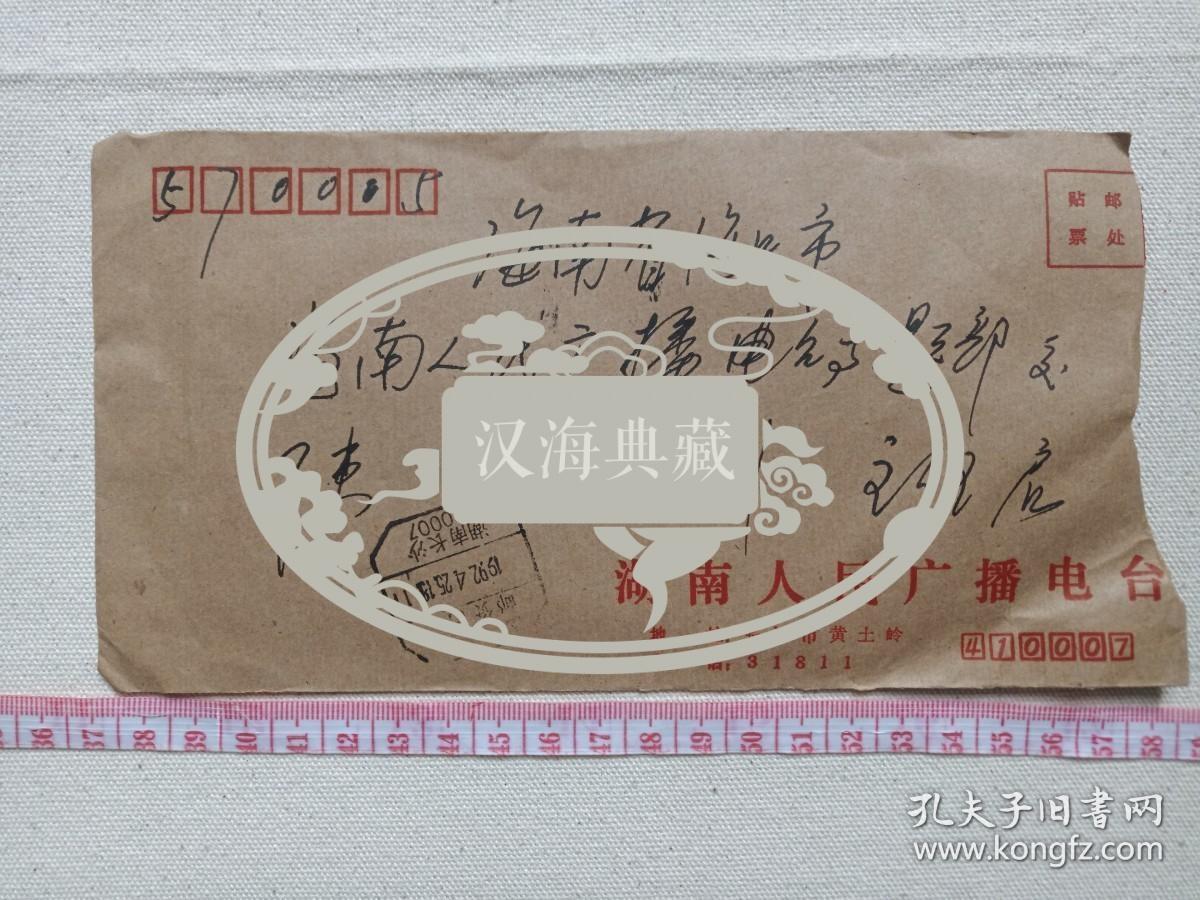 570005
贴邮
票处
海南省海口市
海南人民广播电台 部 交
陈 主任 启
汉海典藏
湖南长沙
0007
1992.4.25.18
湖南人民广播电台
市黄土岭
31811
410007
36 37 38 39 40 41 42 43 44 45 46 47 48 49 50 51 52 53 54 55 56 57 58
孔夫子旧书网
www.kongfz.com